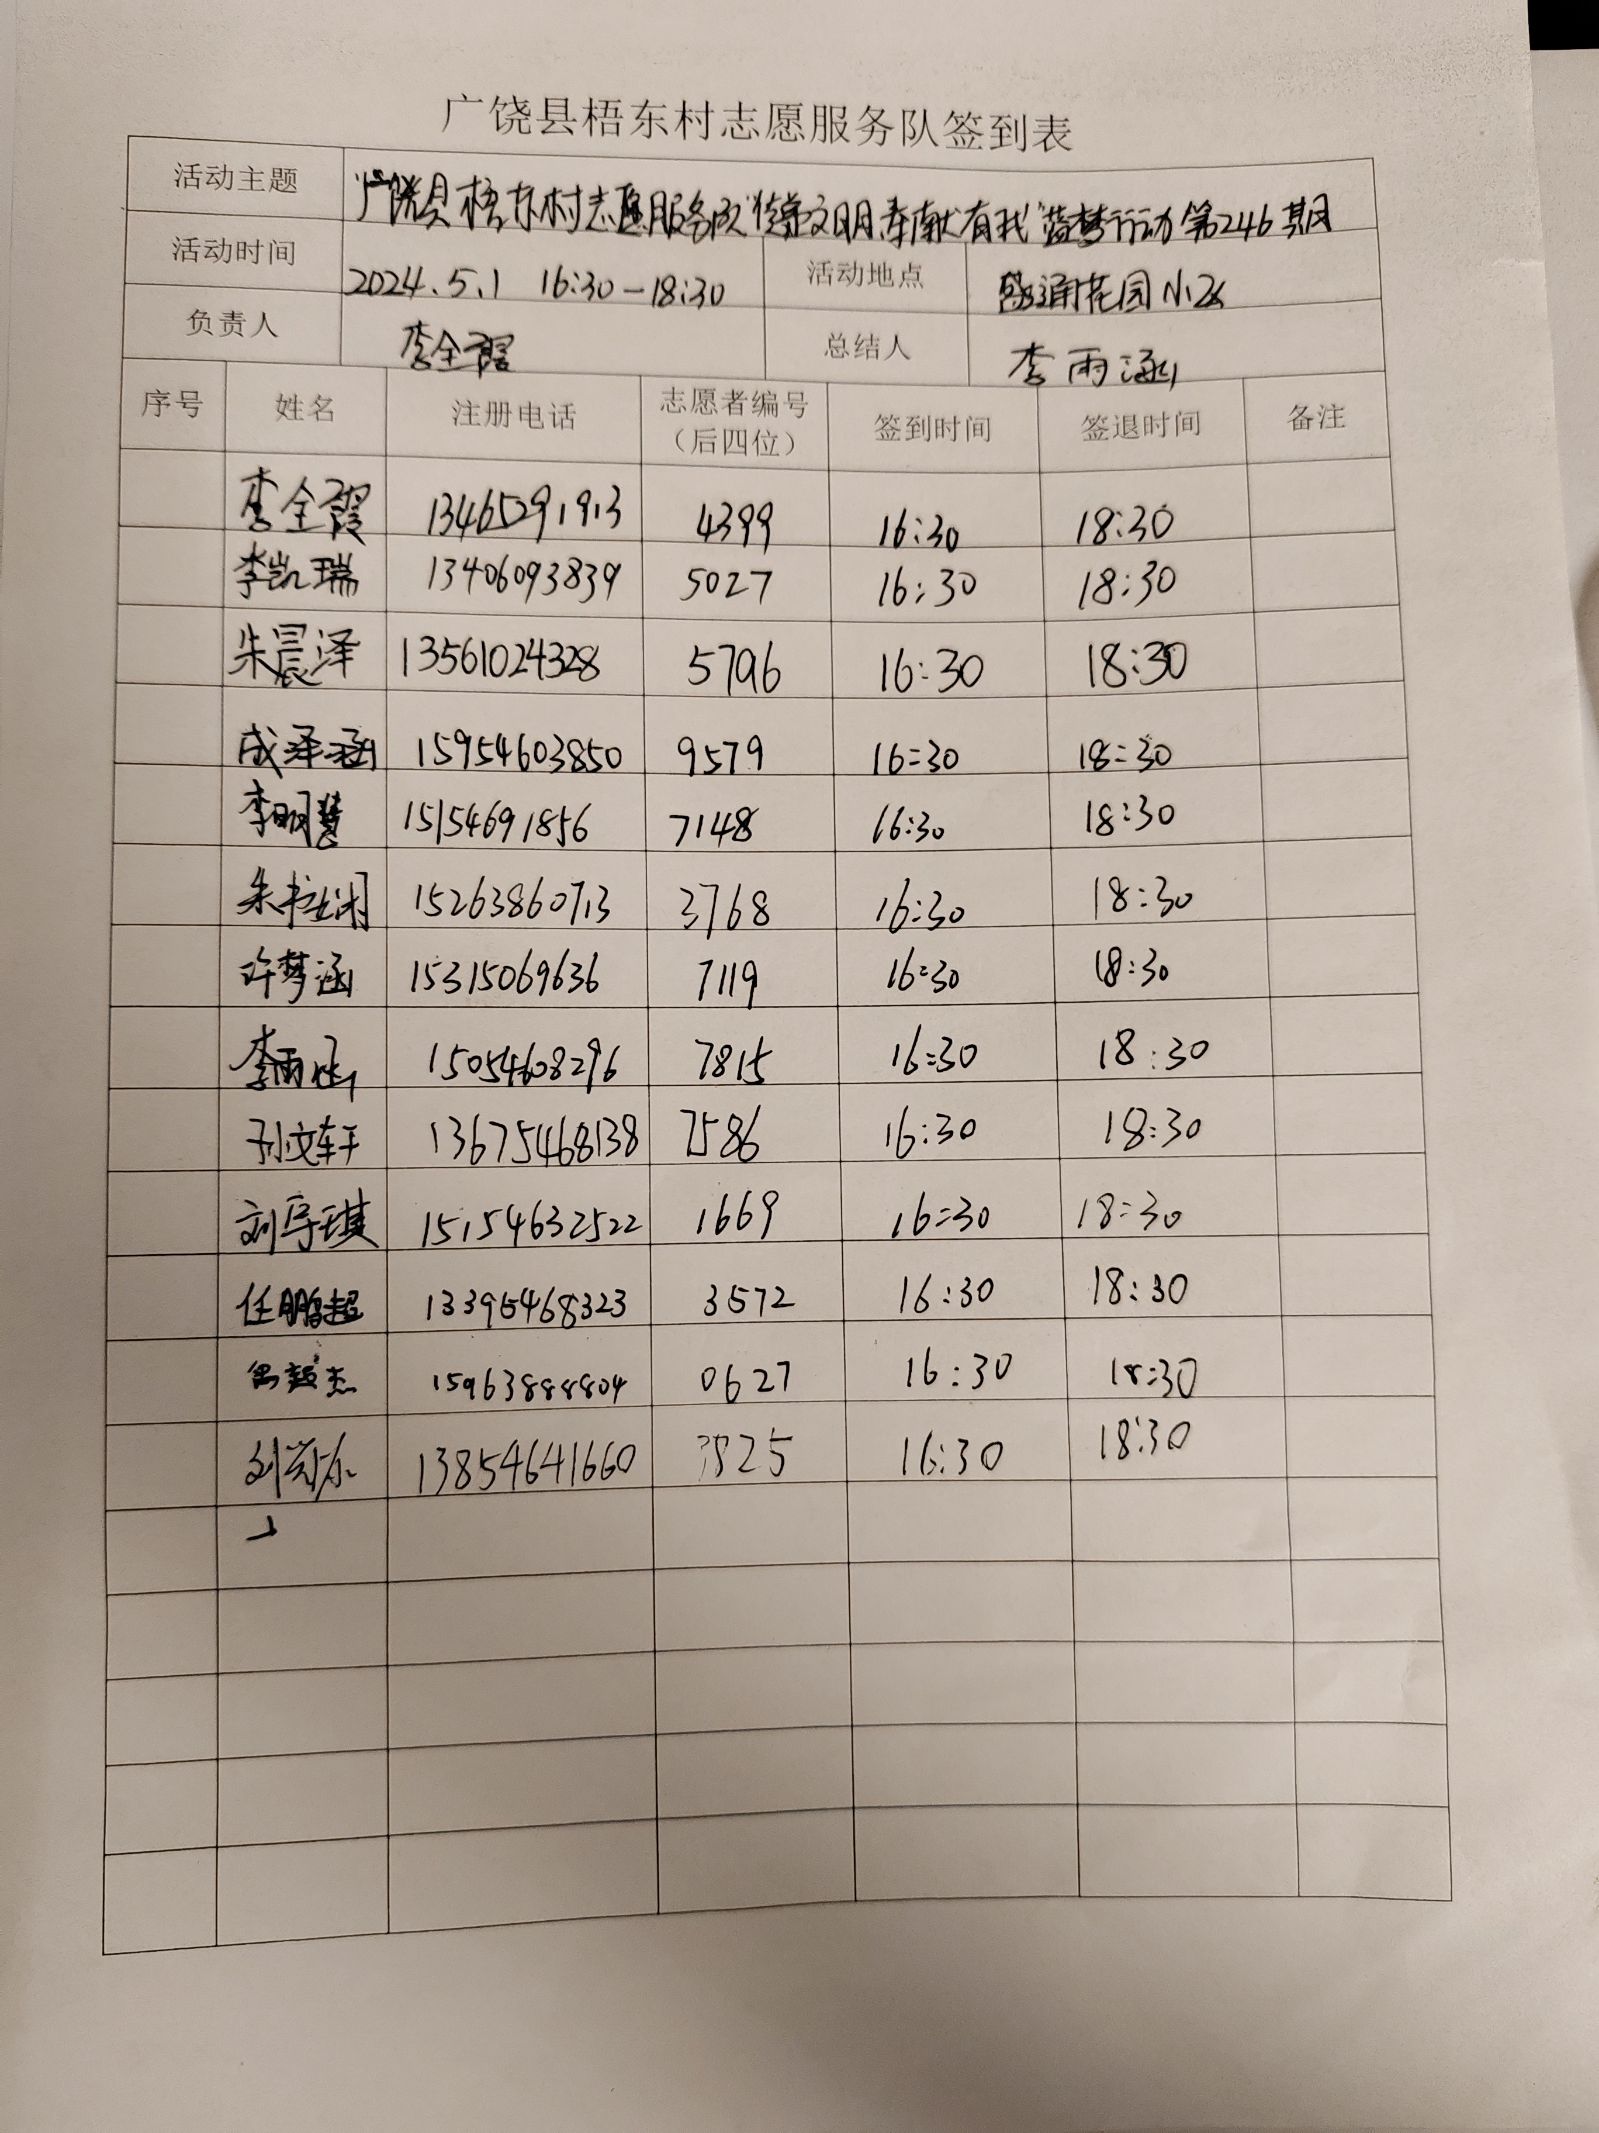 广饶县梧东村志愿服务队签到表
活动主题 广饶县梧东村志愿服务队"传承文明,奉献有我"蓝梦行动第246期
活动时间 2024.5.1 16:30-18:30 活动地点 盛通花园小区
负责人 李全霞 总结人 李雨涵
序号 姓名 注册电话 志愿者编号（后四位） 签到时间 签退时间 备注
李全霞 13465291913 4399 16:30 18:30
李凯瑞 13406093839 5027 16:30 18:30
朱晨泽 13561024328 5796 16:30 18:30
成泽涵 15954603850 9579 16:30 18:30
李明慧 15154691856 7148 16:30 18:30
朱书娴 15263860713 3768 16:30 18:30
许梦涵 15315069636 7119 16:30 18:30
李雨涵 15054608296 7815 16:30 18:30
孙文轩 13675468138 7586 16:30 18:30
刘宇琪 15154632522 1669 16:30 18:30
任鹏超 13395468323 3572 16:30 18:30
15963888804 0627 16:30 18:30
13854641660 3825 16:30 18:30